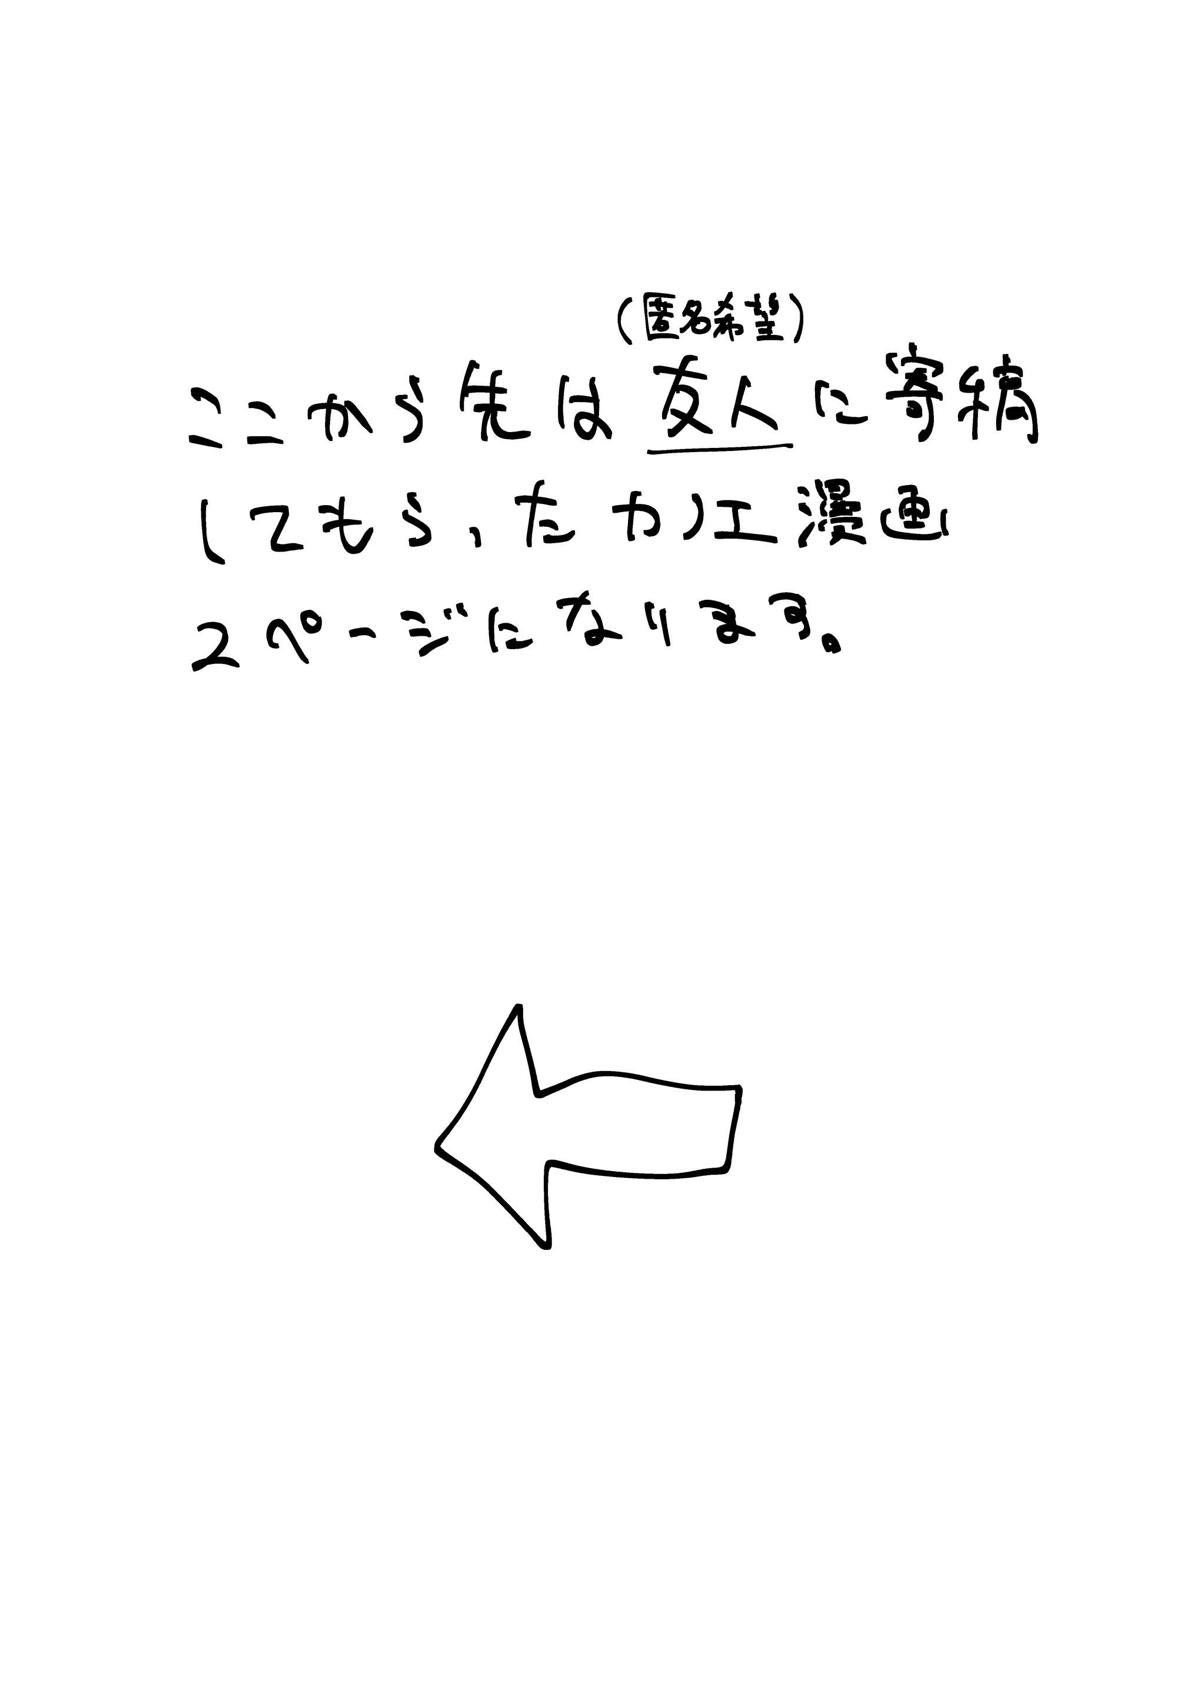 (匿名希望)
ここから先は友人に寄稿
してもらったカノエ漫画
2ページになります。